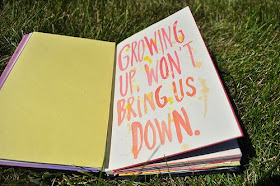 GROWING
UP WON'T
BRING US
DOWN.